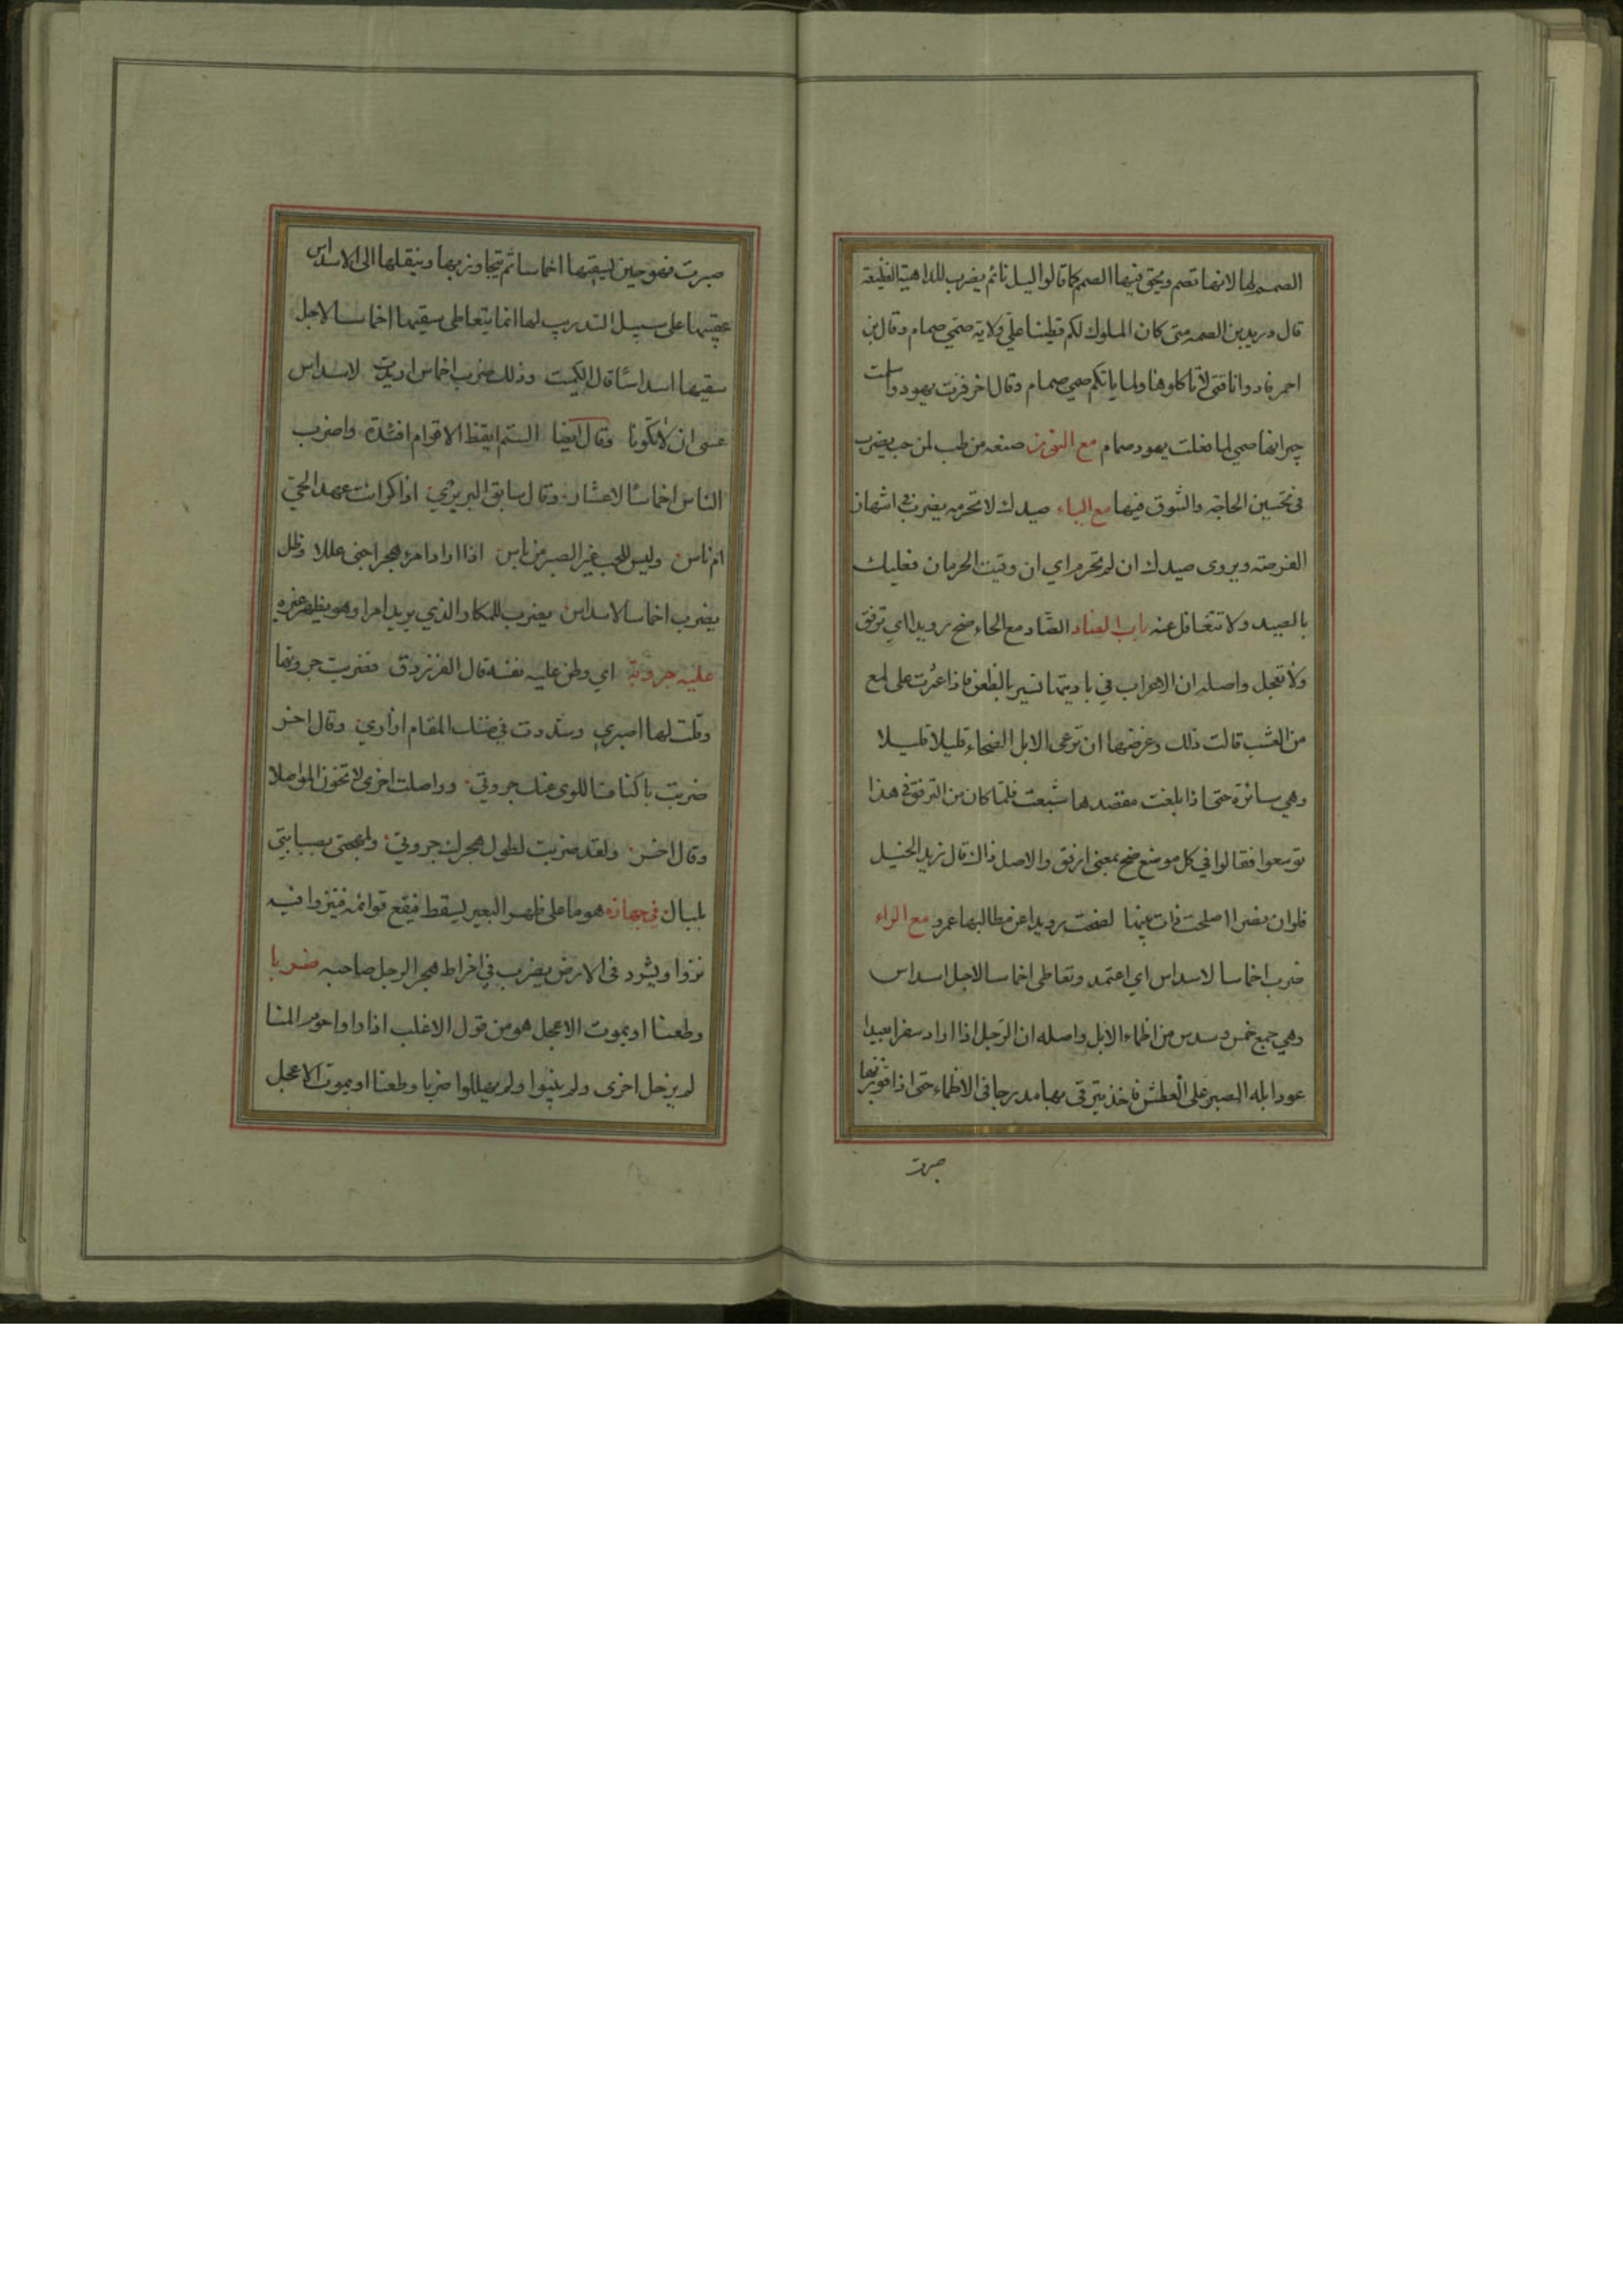 الصمم لها لانها تصم ويحق فيها الصم كما قالوا ليل نائم يضرب للداهية الفظيعة
قال دريد بن الصمه متى كان الملوك لكم قطينا علي ولاية صمي صمام وقال بن
احمر فادوا ناقتي لا تاكلوها ولما ياتكم صمي صمام وقال اخر فرت يهود واسلمت
جيرانها صمي لما فعلت يهود صمام مع النون صنعه من طب لمن حب يضرب
في تحسين الحاجة والتنوق فيها مع الياء صيدك لا تحرمه يضرب في انتهاز
الفرصة ويروى صيدك ان لم تحرم اي ان وقيت الحرمان فعليك
بالصيد ولا تتغافل عنه باب الضاد الضاد مع الحاء ضح رويدا اي ترفق
ولا تعجل واصله ان الاعراب في باديتها تسير بالظعن فاذا عثرت على لمع
من العشب قالت ذلك وغرضها ان ترعى الابل الضحاء قليلا قليلا
وهي سائرة حتى اذا بلغت مقصدها شبعت فلما كان من الترفق في هذا
توسعوا فقالوا في كل موضع ضح بمعنى ارفق والاصل ذاك قال زيد الخيل
فلو ان نصرا اصلحت ذات بيننا لضحت رويدا عن مطالبها عمرو مع الراء
ضرب اخماسا لاسداس اي اعتمد وتعاطى اخماسا لاجل اسداس
وهي جمع خمس وسدس من اظماء الابل واصله ان الرجل اذا اراد سفرا بعيدا
عود ابله الصبر على العطش فاخذ يترقى بها مدرجا في الاظماء حتى اذا فوزبها
صبرت
صبرت فهو حين يسقيها اخماسا ثم يتجاوز بها وينقلها الى الاسداس
عقيبها على سبيل التدريب لها انما يتعاطى سقيها اخماسا لاجل
سقيها اسداسا قال الكميت وذلك ضرب اخماس اريدت لاسداس
عسى ان لا تكونا وقال ايضا الستم ايقظ الاقوام افئدة واضرب
الناس اخماسا لاعشار وقال سابق البربري اذاكر انت عهد الحي
ام ناس وليس للحب غير الصبر من باس اذا اراد امرء هجرا جنى عللا وظل
يضرب اخماسا لاسداس يضرب للمكار والذي يريد امرا وهو يظهر غيره
عليه جروته اي وطن عليه نفسه قال الفرزدق فضربت جروتها
وقلت لها اصبري وشددت في ضنك المقام ازاري وقال اخر
ضربت باكناف اللوى عنك جروتي وواصلت اخرى لا تخون المواصلا
وقال اخر ولقد ضربت لطول هجرك جروتي ولمهجتي بصبابتي
بلبال في جهازه هو ما على ظهر البعير يسقط فيقع قوائمه فينزوا فيه
نزوا ويشرد في الارض يضرب في افراط هجر الرجل صاحبه ضربا
وطعنا او يموت الاعجل هو من قول الاغلب اذا راوا حوم المنا
لم يزحل اخرى ولم ينبوا ولم يهللوا ضربا وطعنا او يموت الاعجل